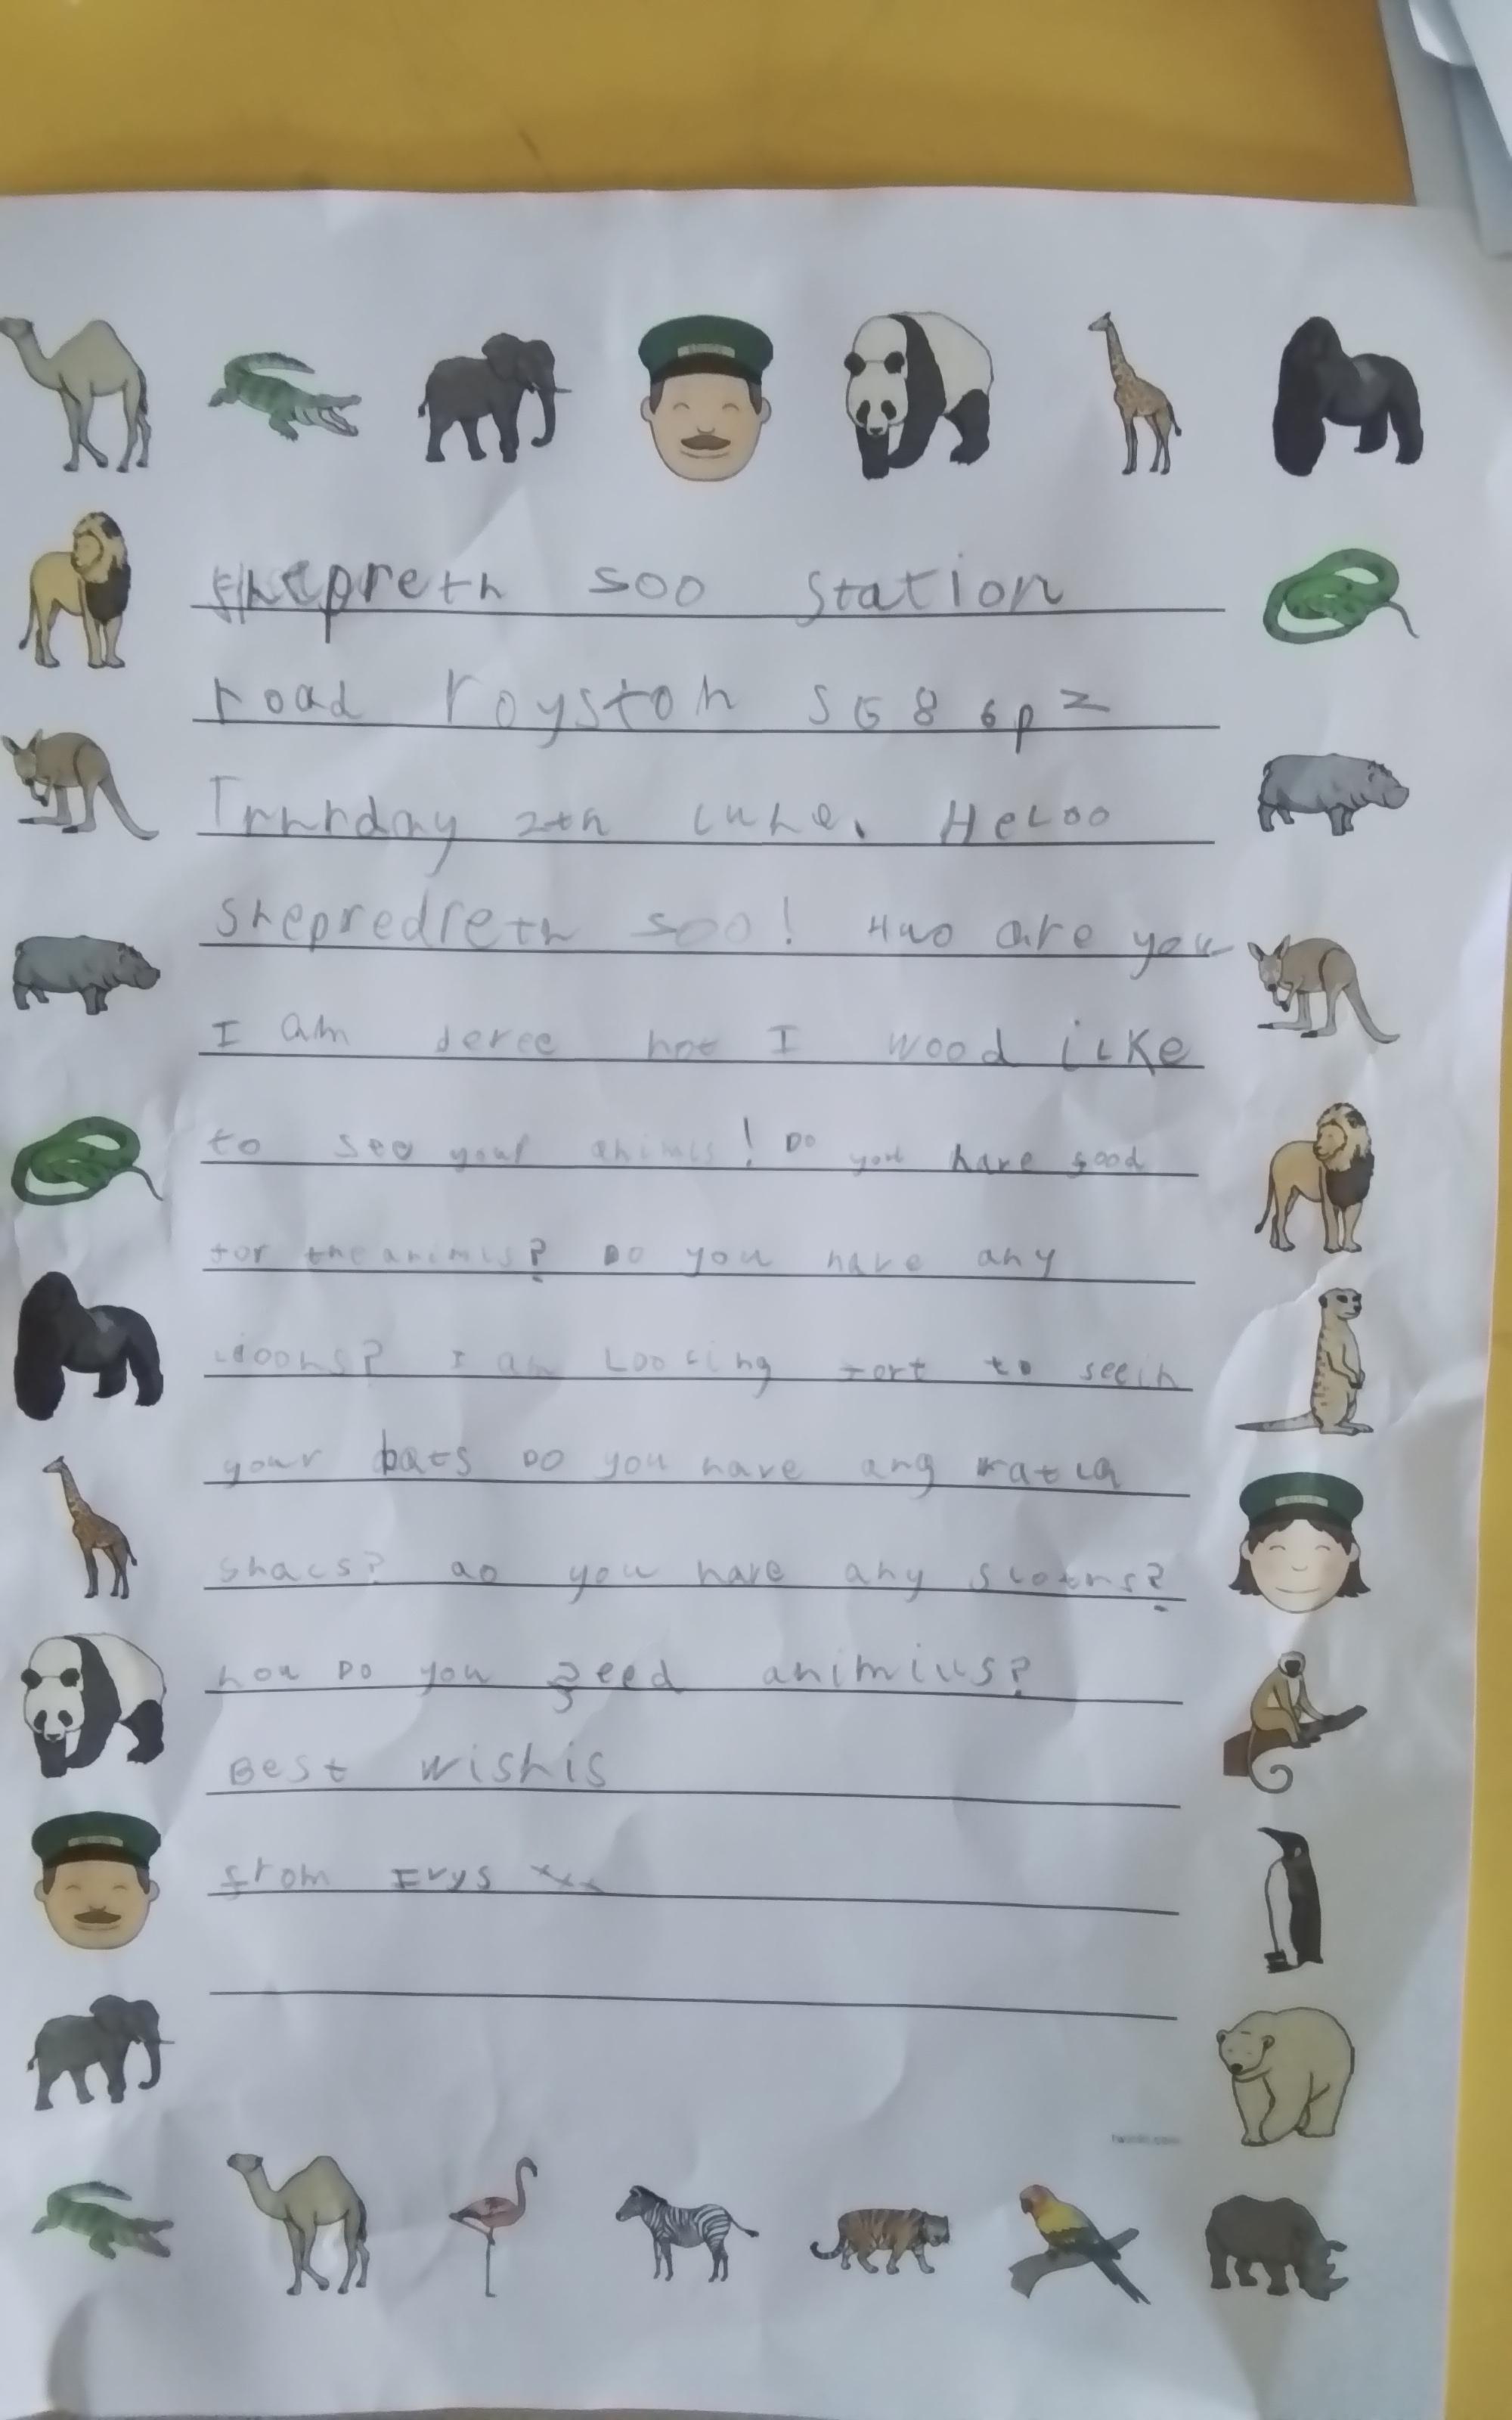 Shepreth soo Station
road royston SG8 6pz
Thurday 2th June. Heloo
Shepredreth soo! Hwo are you
I am I wood like
to see your animls! Do you have food
for the animls? Do you have any
I am Loocing fort to seein
your bats Do you have any ratla
snacs? do you have any slothes?
how Do you feed animlus?
Best wishis
from Ivys xxx
twinkl.com